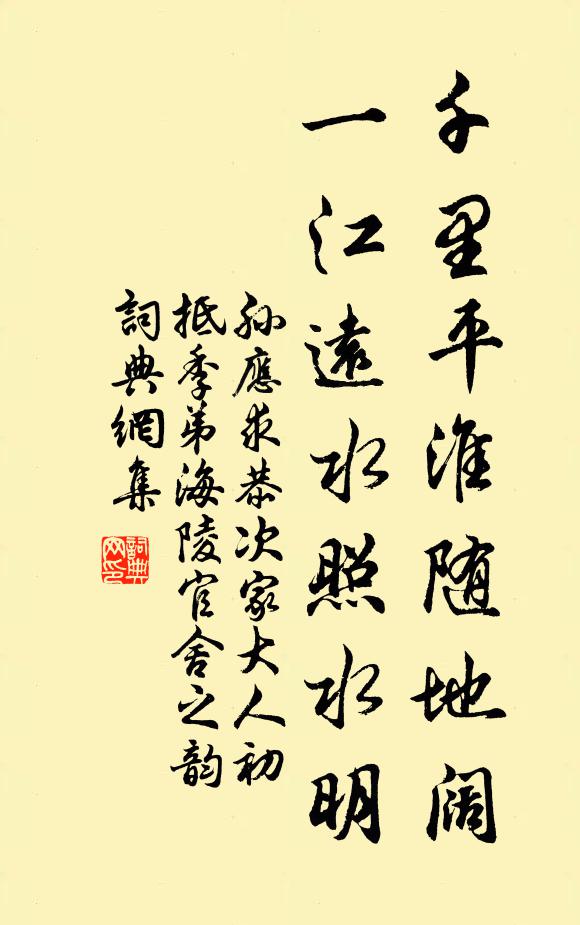 千里平淮随地阔
一江遠水照水明
孙應求恭次家大人初
抵季弟海陵官舍之韵
詞典網集
詞典
网印